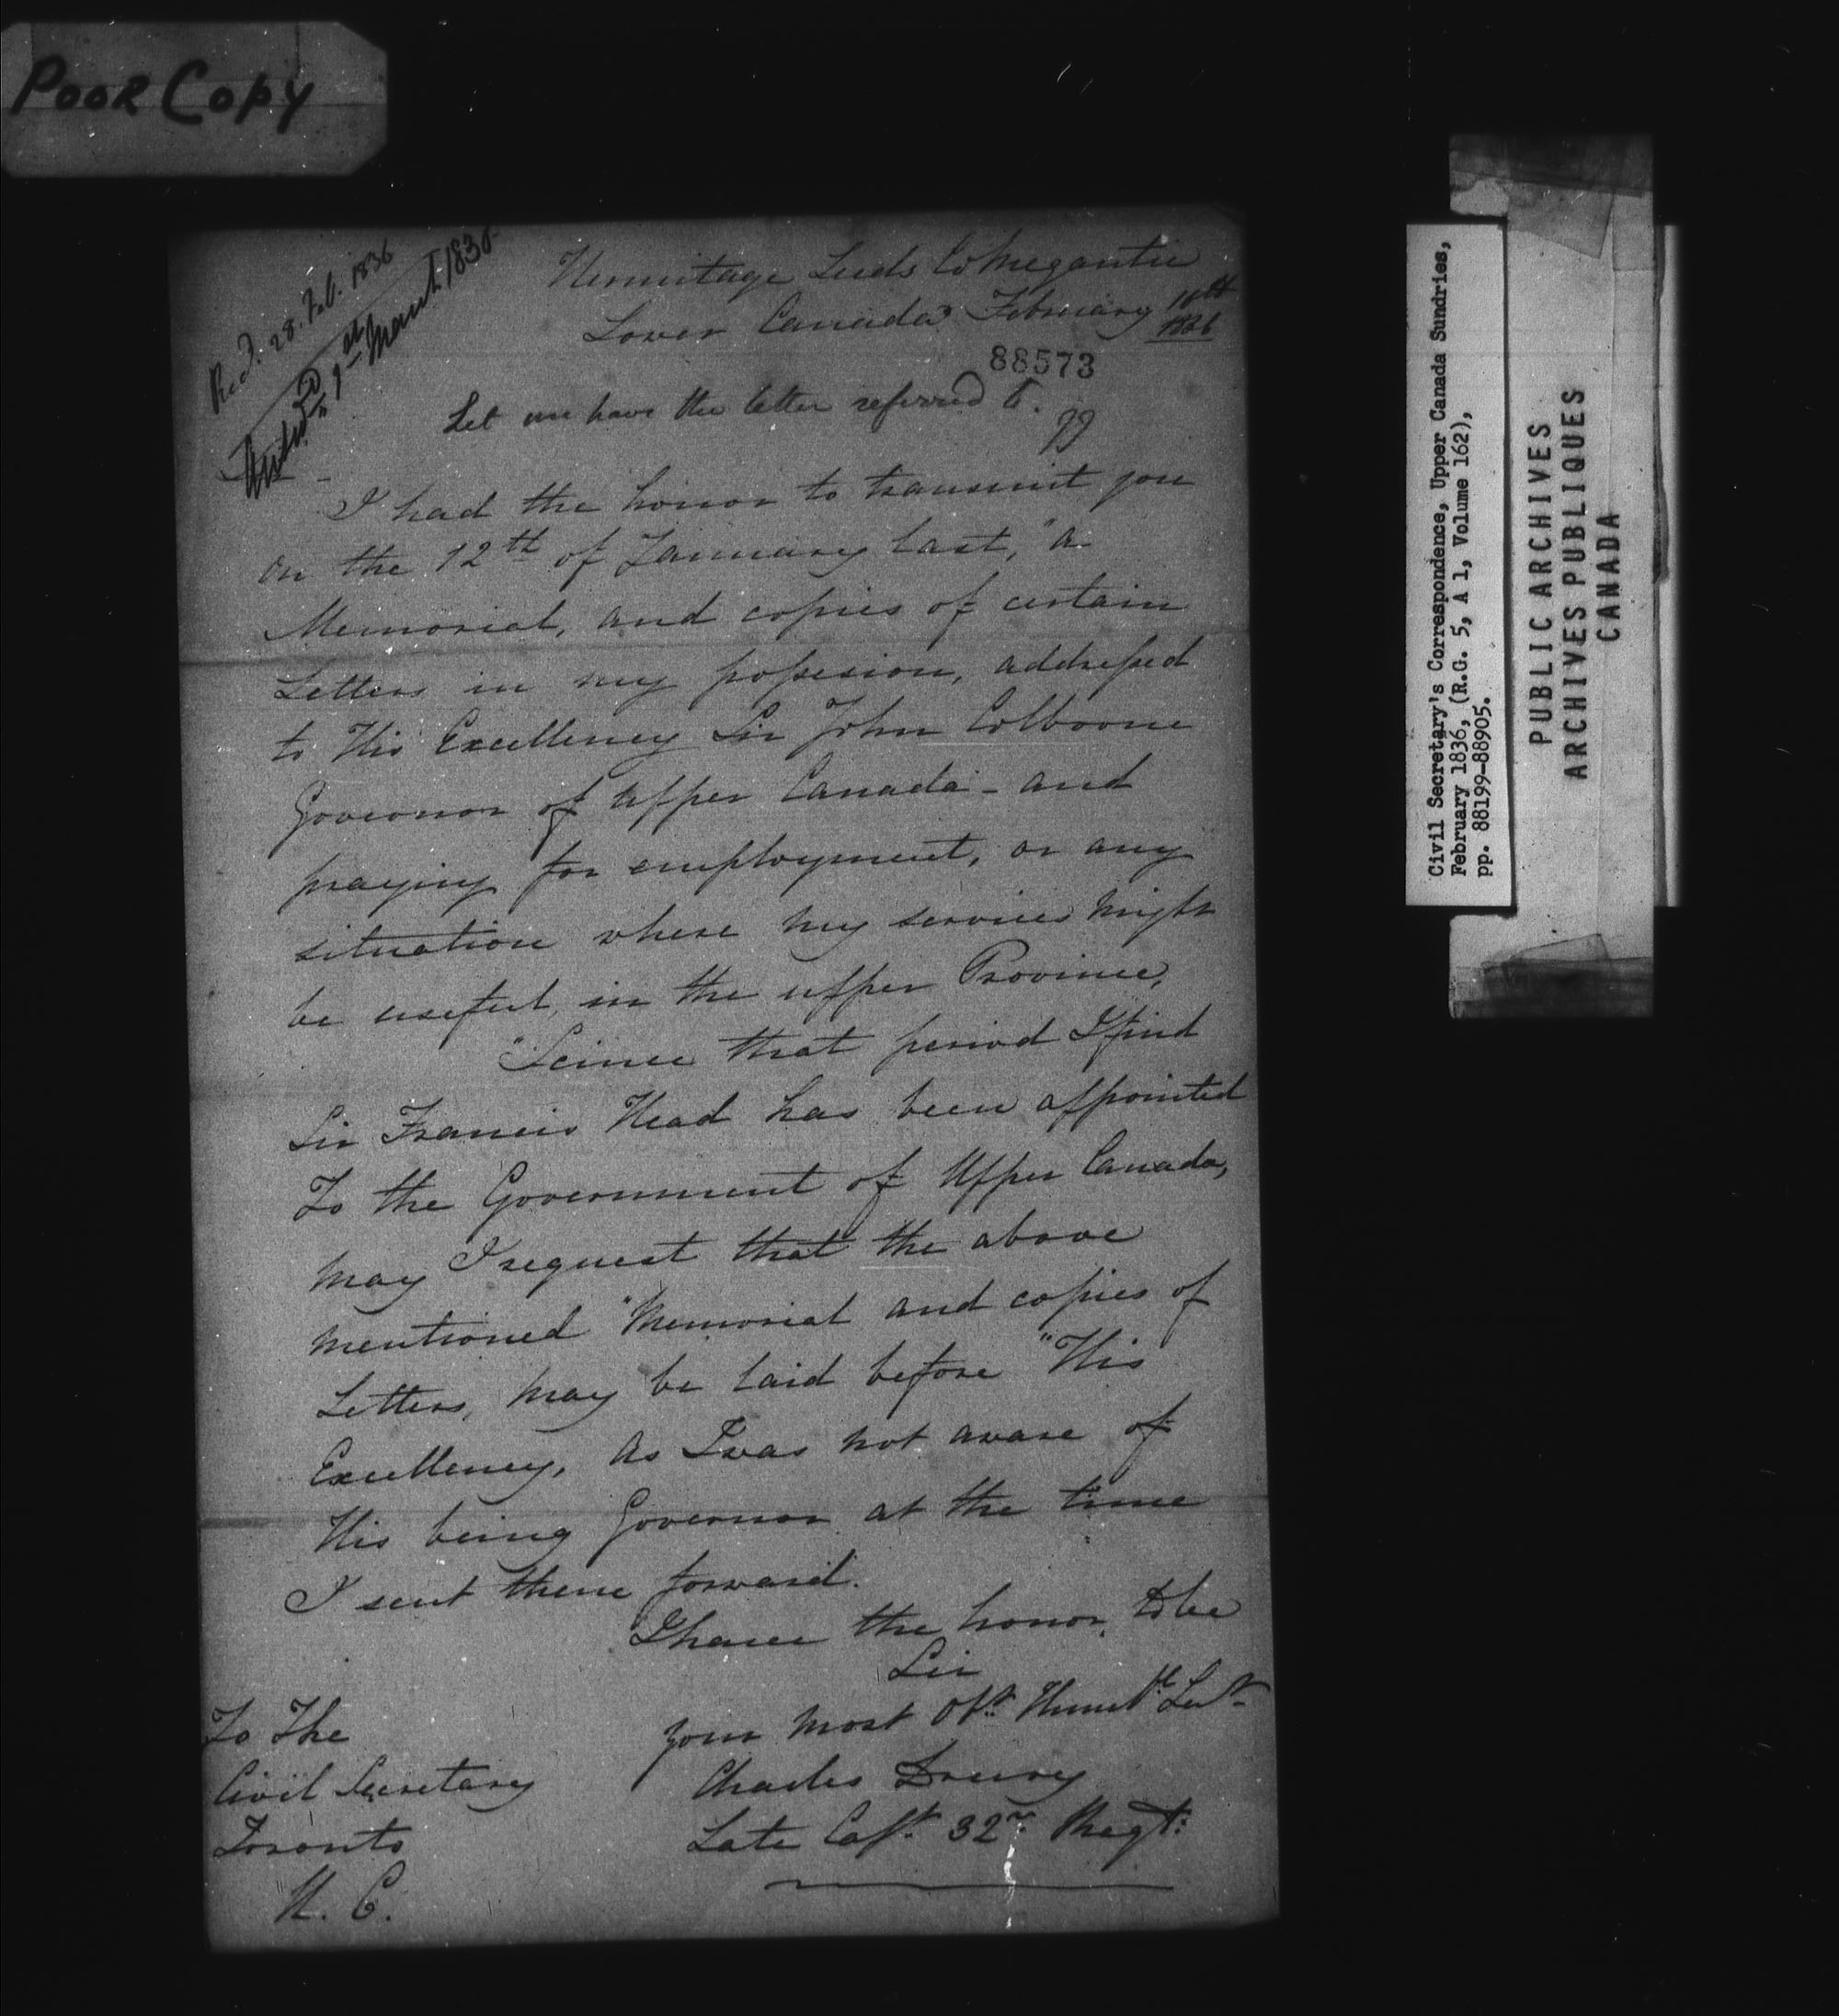 POOR COPY
Recd. 28. Feb. 1836
Answd 9th March 1836
Hermitage Leeds Co Megantic
Lower Canada February
1836
88573
Let me have the letter referred to.
I had the honor to transmit you
on the 12th of January last, "a
Memorial, and copies of certain
Letters in my possesion, addressed
to His Excellency Sir John Colborne
Governor of Upper Canada - and
praying for employment, or any
situation where my services might
be useful, in the upper Province,
"Scince that period I find
Sir Francis Head has been appointed
To the Government of Upper Canada,
may I request that the above
mentioned "Memorial and copies of
Letters, may be laid before "His
Excellency, as I was not aware of
His being Governor at the time
I sent them forward.
I have the honor, to be
Sir
your most Obt. Humble Servt
Charles Drury
Late Capt. 32d. Regt:
To The
Civil Secretary
Toronto
U. C.
Civil Secretary's Correspondence, Upper Canada Sundries,
February 1836, (R.G. 5, A 1, Volume 162),
pp. 88199-88905.
PUBLIC ARCHIVES
ARCHIVES PUBLIQUES
CANADA